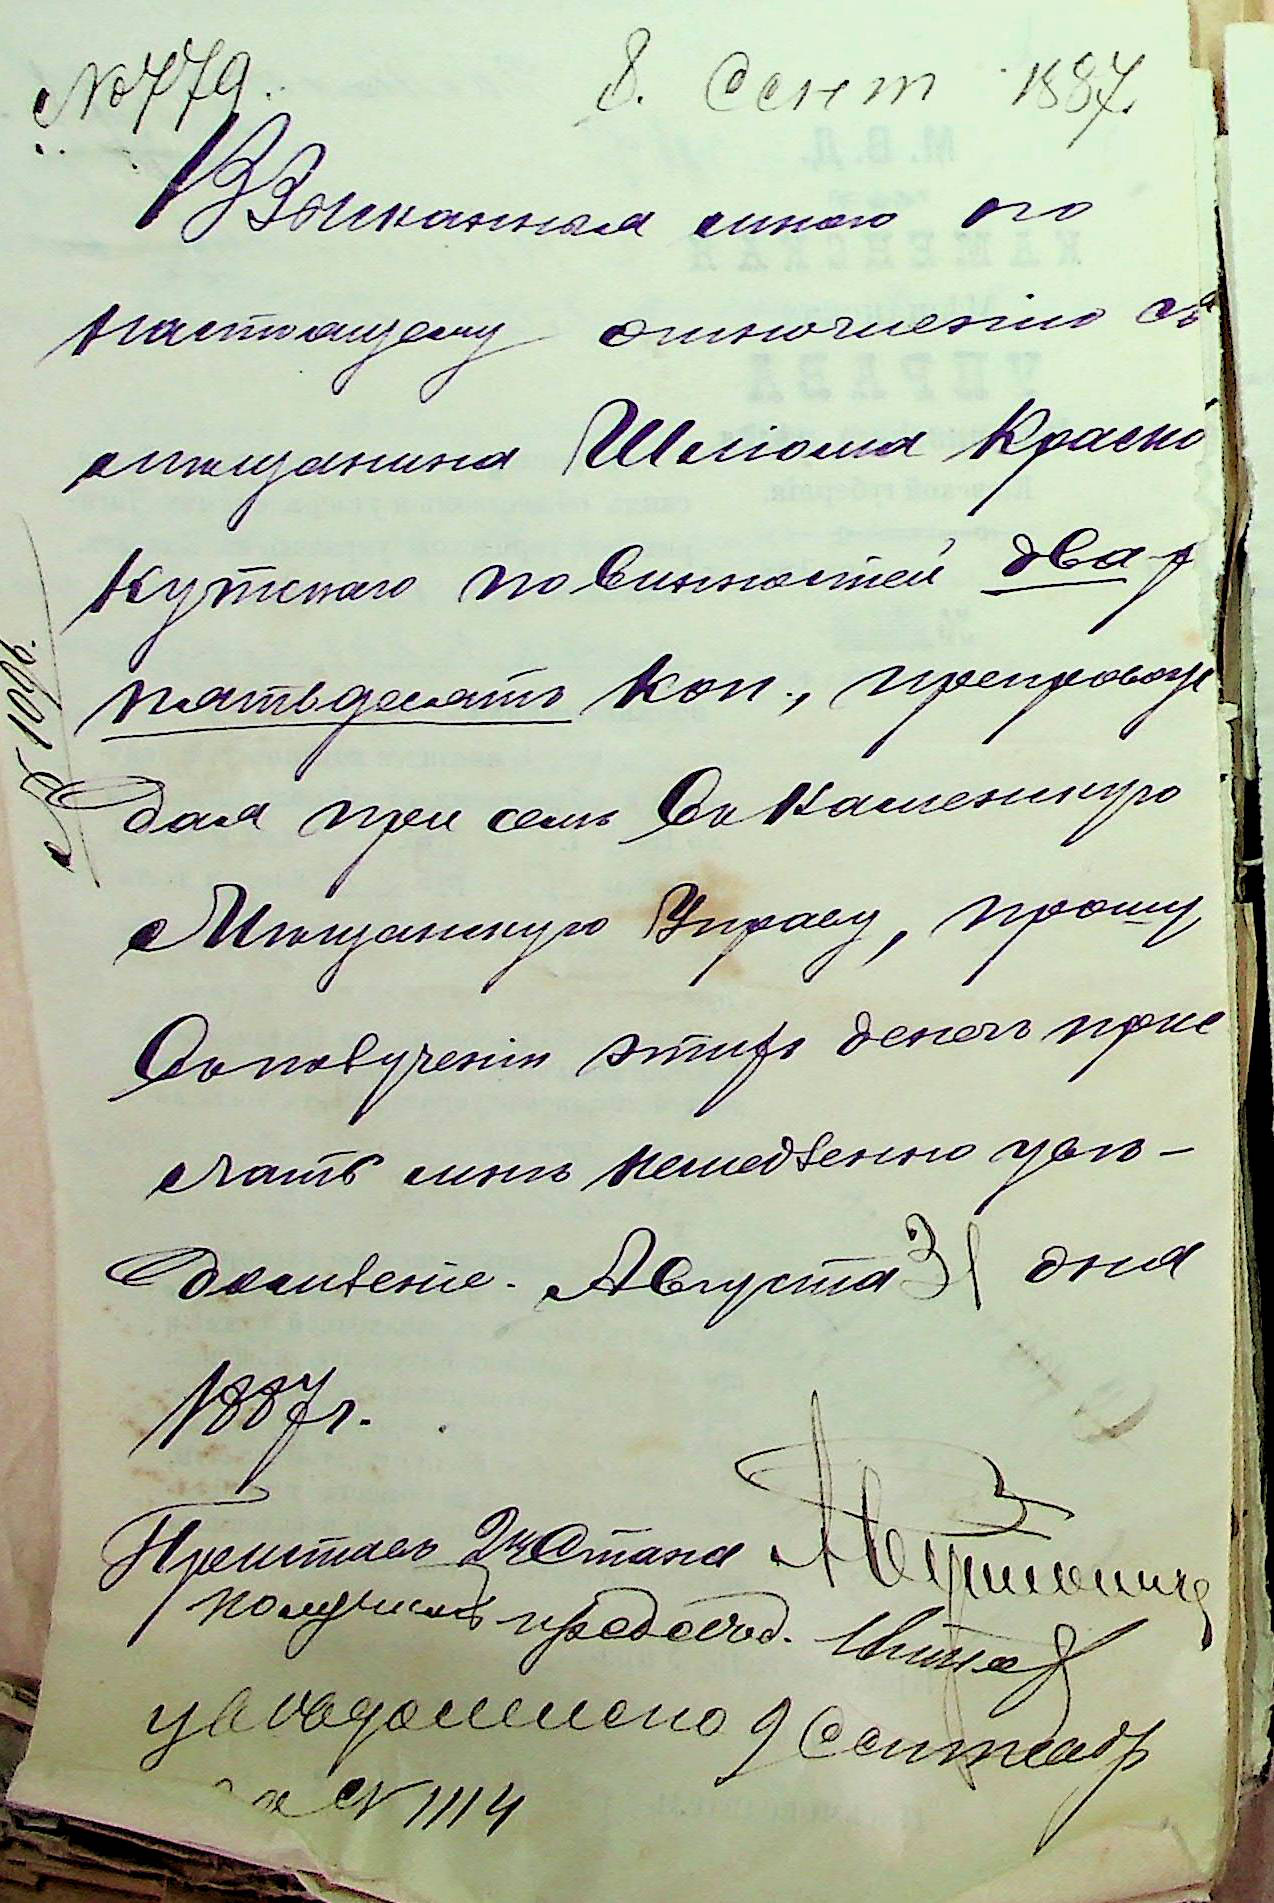 № 779. 8. Сент 1887.
Взысканныя мною по
настоящему отношенію съ
мѣщанина Шліома Красно
кутскаго повинностей два р
пятьдесятъ коп., препровож
дая при семъ въ Каменскую
Мѣщанскую Управу, прошу
въ полученіи этихъ денегъ прис
лать мнѣ немедленно увѣ-
домленіе. Августа 31 дня
1887 г.
Приставъ 2 Стана
получилъ
увѣдомлено 9 Сентябр
за № 1114